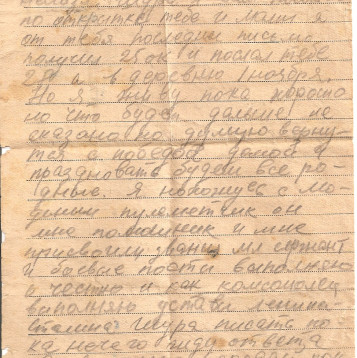 по открытке тебе и маме я
от тебя последнее письмо
получил 25 ок и послал тебе
и в деревню 1 ноября.
Но я живу пока хорошо
но что будет дальше не
сказано но думаю верну-
тся с победой домой и
праздновать будем все ро-
дные. Я нахожусь с
пулеметчик он
мне и мне
присвоили звания мл сержант
и боевые посты выполняю
и честно и как комсомолец
выполняю устав Ленина
Сталина Шура писать по-
ка нечего жду ответа